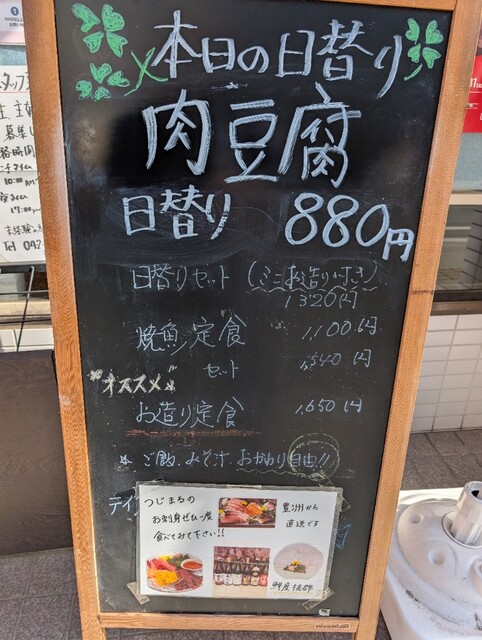 本日の日替り
肉豆腐
日替り 880円
日替りセット (ミニお造り付き)
1320円
焼魚定食 1,100円
セット 1,540円
オススメ
お造り定食 1,650円
ご飯、みそ汁、おかわり自由!!
テイ
つじまるの
お刺身ぜひ一度
食べてみて下さい!!
豊洲から
直送です
鮮度抜群
スタッフ
募集
務時間
10:00
17:00
未経験
Tel 042